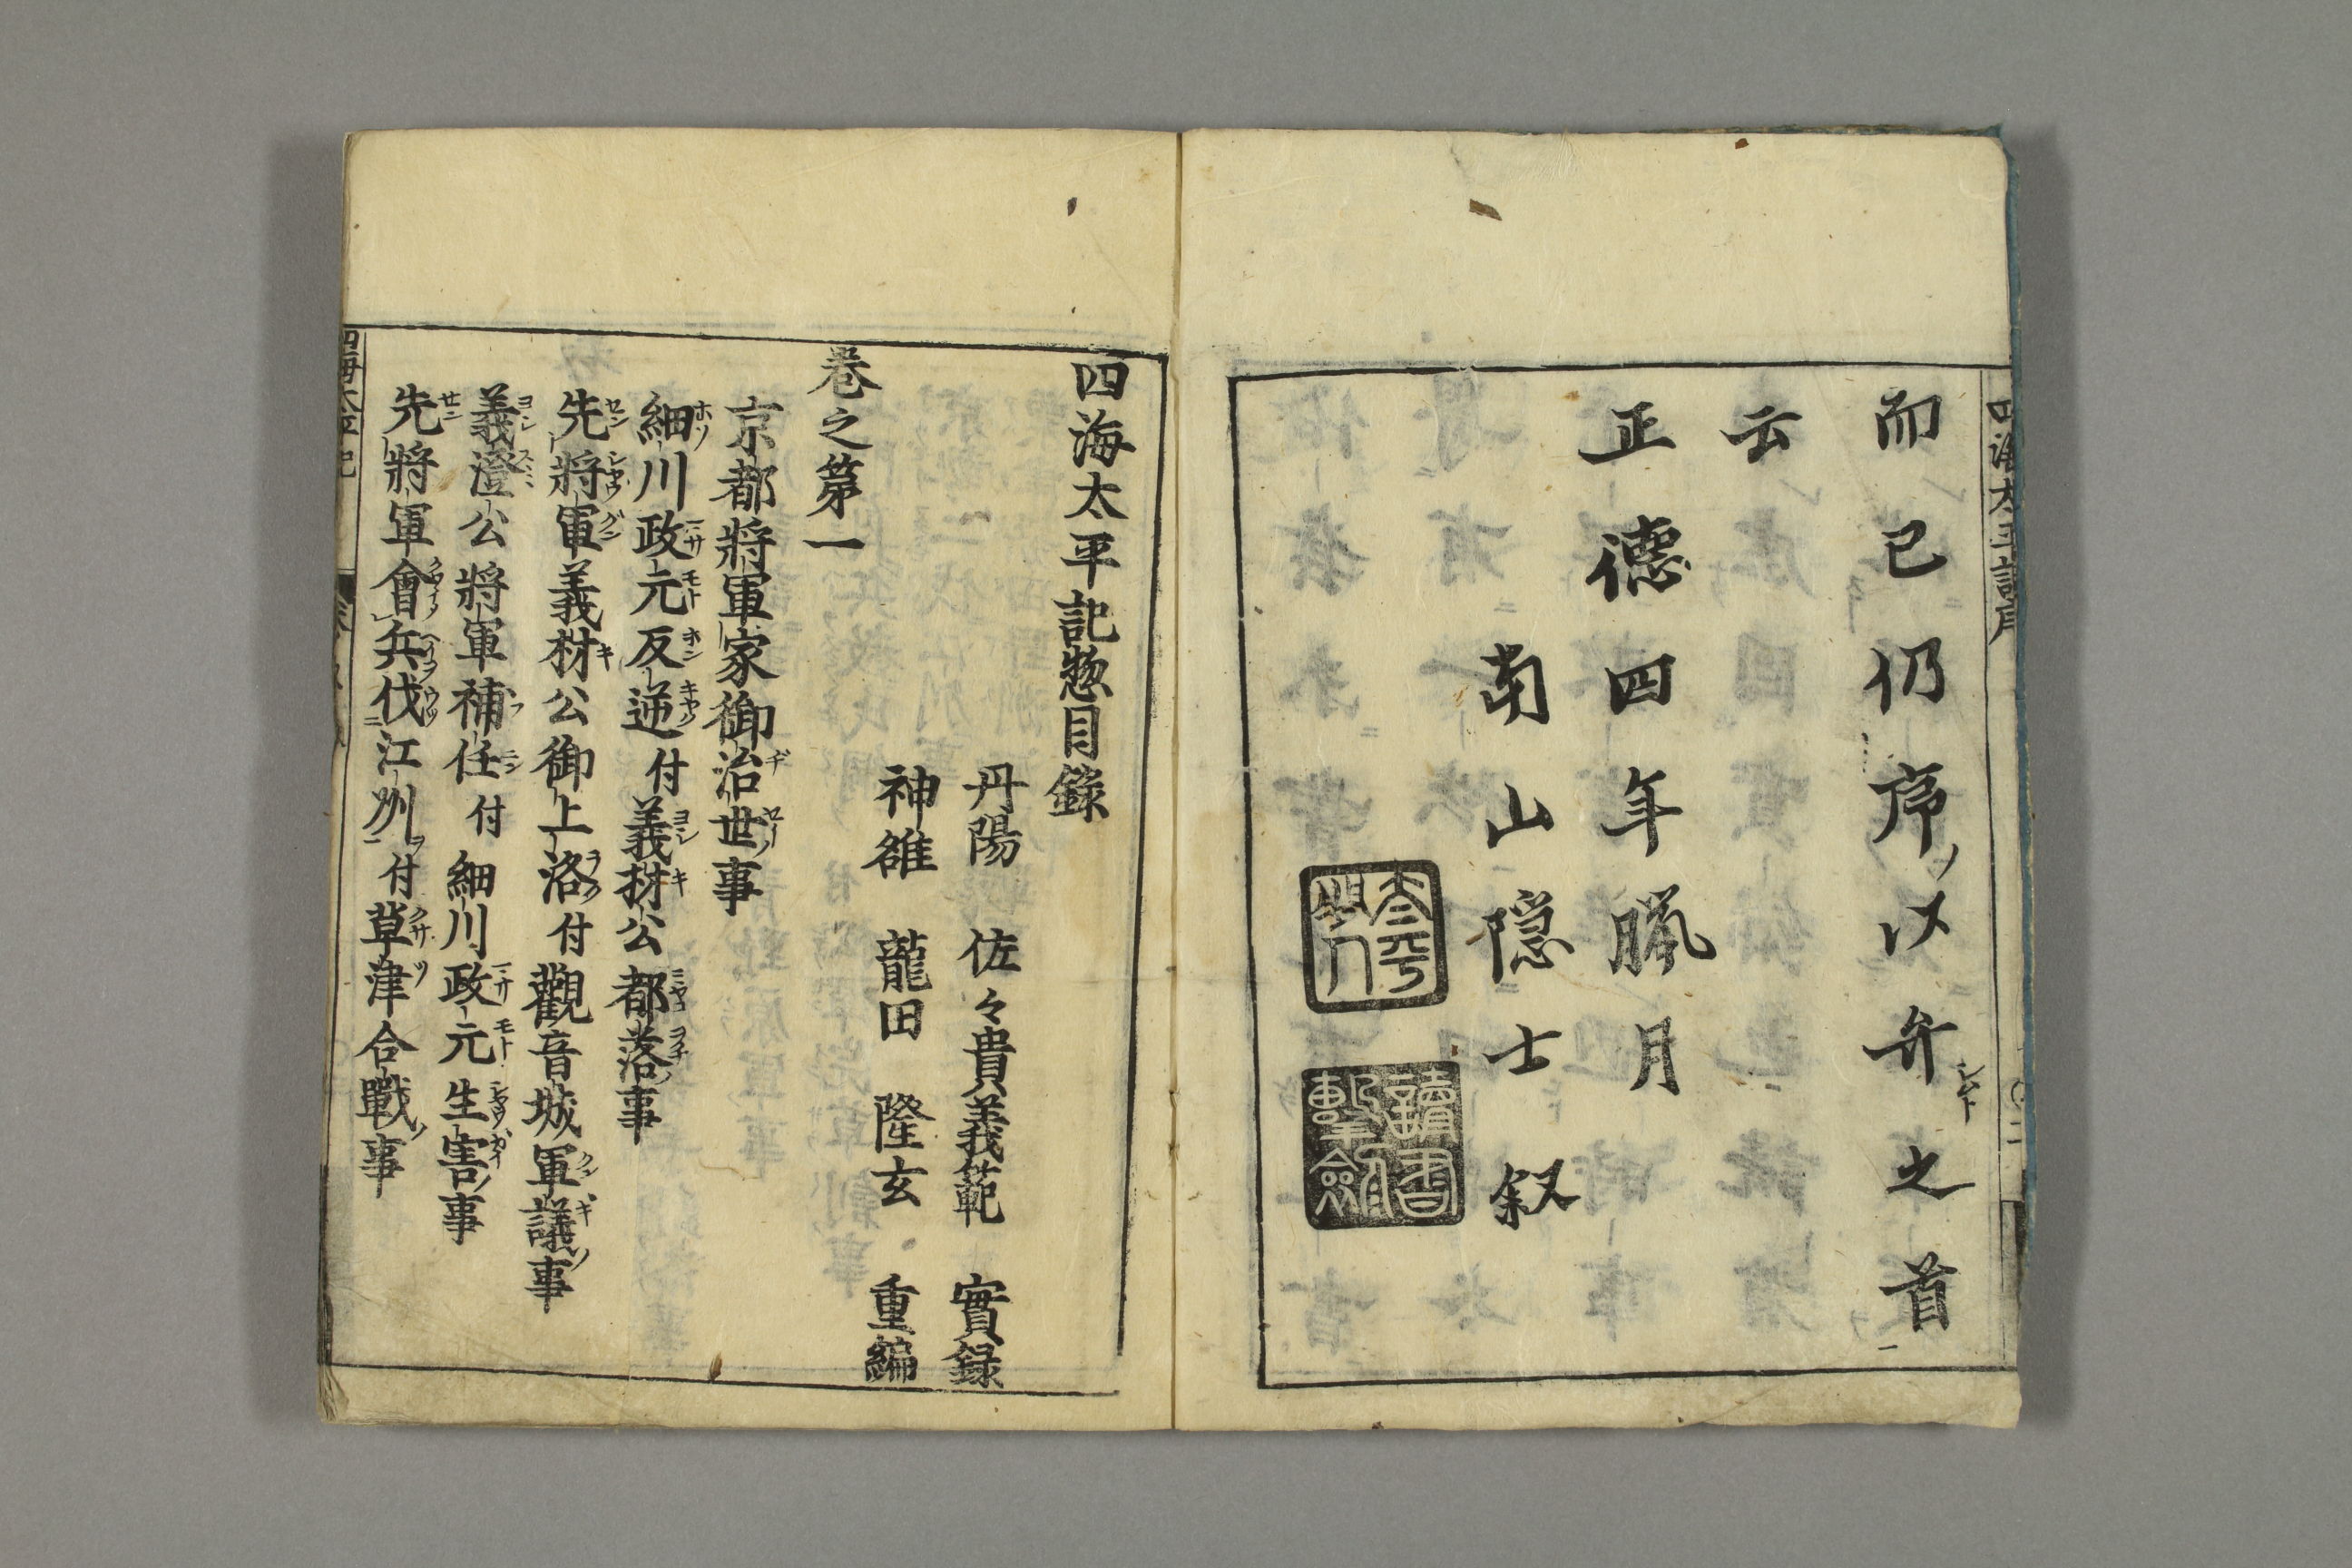 而已仍序以弁之首
云
正德四年臘月
南山隠士叙
四海太平記惣目錄
丹陽 佐々貴義範 實錄
神雒 龍田 隆玄 重編
巻之第一
京都將軍家御治世事
細川政元反逆付義材公都落事
先將軍義材公御上洛付觀音城軍議事
義澄公將軍補任付細川政元生害事
先將軍會兵伐江州付草津合戰事